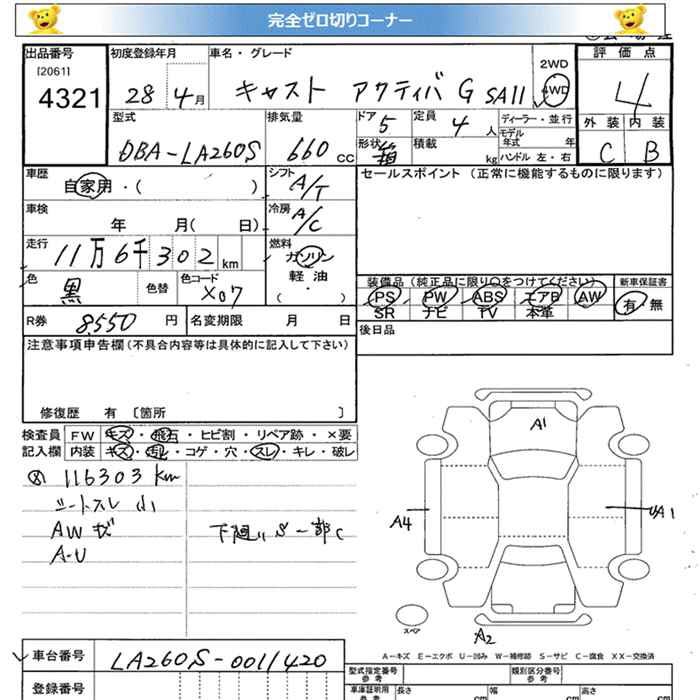 完全ゼロ切りコーナー
出品番号 初度登録年月 車名・グレード 評価点
[2061]
4321 28 4月 キャスト アクティバ G SAII 2WD 4WD 4
型式 排気量 ドア 定員 ディーラー・並行 外装 内装
DBA-LA260S 660 CC 5 4 人 モデル年式 年
形状 箱 積載 kg ハンドル 左・右 C B
車歴 自家用・( ) シフト A/T セールスポイント (正常に機能するものに限ります)
車検 年 月( 日) 冷房 A/C
走行 11万6千302 km 燃料 ガソリン
軽油
( ・ )
色 黒 色替 色コード X07
装備品(純正品に限り○をつけてください) 新車保証書
PS PW ABS エアB AW 有・無
SR ナビ TV 本革
R券 8550 円 名変期限 月 日 後日品
注意事項申告欄(不具合内容等は具体的に記入して下さい)
修復歴 有 〔箇所 〕
検査員 FW キズ・飛石・ヒビ割・リペア跡・×要
記入欄 内装 キズ・汚レ・コゲ・穴・スレ・キレ・破レ
⑧ 116303 km
シートスレ 小
AWキズ 下廻りS一部C
A-U
A1
A4
UA1
スペア
A2
A-キズ E-エクボ U-凹み W-補修跡 S-サビ C-腐食 XX-交換済
車台番号 LA260S-0011420
型式指定番号 参考 類別区分番号 参考
登録番号 車庫証明用 参考 長さ cm 幅 cm 高さ cm